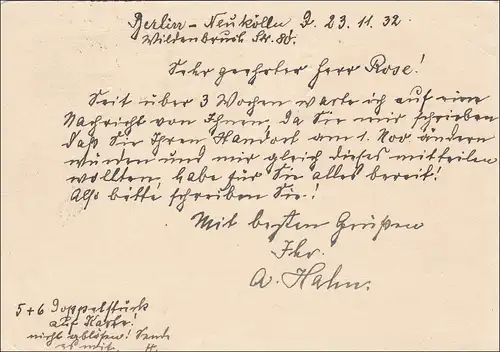 Berlin-Neukölln D. 23.11.32
Wildenbruch Str. 80.
Sehr geehrter Herr Rose!
Seit über 3 Wochen warte ich auf eine
Nachricht von Ihnen, da Sie mir schrieben
daß Sie Ihren Standort am 1. Nov. ändern
würden und mir gleich dieses mitteilen
wollten, habe für Sie alles bereit!
Also bitte schreiben Sie!
Mit besten Grüßen
Ihr
A. Hahn.
5+6 Doppelstück
auf Karte!
nicht ablösen! Sende
es mit. H.